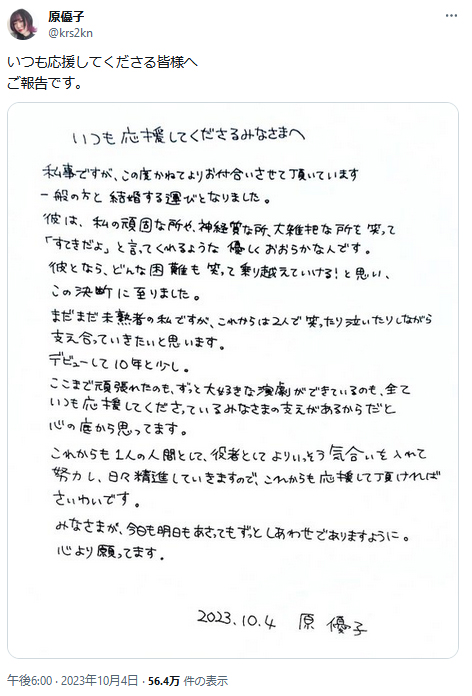 原優子
@krs2kn
いつも応援してくださる皆様へ
ご報告です。
いつも応援してくださるみなさまへ
私事ですが、この度かねてよりお付合いさせて頂いています
一般の方と結婚する運びとなりました。
彼は、私の頑固な所や、神経質な所、大雑把な所を笑って
「すてきだよ」と言ってくれるような優しくおおらかな人です。
彼となら、どんな困難も笑って乗り越えていける！と思い、
この決断に至りました。
まだまだ未熟者の私ですが、これからは2人で笑ったり泣いたりしながら
支え合っていきたいと思います。
デビューして10年と少し。
ここまで頑張れたのも、ずっと大好きな演劇ができているのも、全て
いつも応援してくださっているみなさまの支えがあるからだと
心の底から思ってます。
これからも1人の人間として、役者としてよりいっそう気合いを入れて
努力し、日々精進していきますので、これからも応援して頂ければ
さいわいです。
みなさまが、今日も明日もあさってもずっとしあわせでありますように。
心より願ってます。
2023.10.4 原 優子
午後6:00 · 2023年10月4日 · 56.4万 件の表示